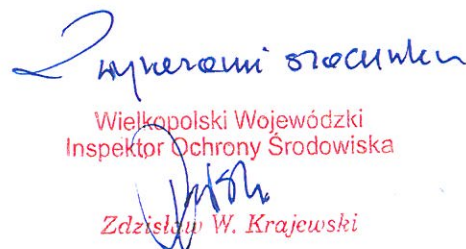 Z wyrazami szacunku
Wielkopolski Wojewódzki
Inspektor Ochrony Środowiska
Zdzisław W. Krajewski